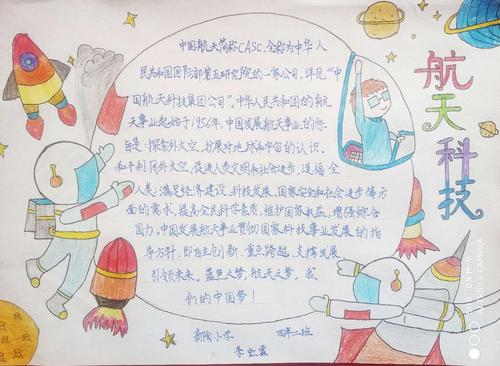 航天科技
中国航天简称CASC,全称为中华人
民共和国国防部第五研究院的一家公司,详见“中
国航天科技集团公司”。中华人民共和国的航
天事业起始于1956年。中国发展航天事业的宗
旨是:探索外太空,扩展对地球和宇宙的认识。
和平利用外太空,促进人类文明和社会进步,造福全
人类;满足经济建设、科技发展、国家安全和社会进步等方
面的需求,提高全民科学素质,维护国家权益,增强综合
国力。中国发展航天事业贯彻国家科技事业发展的指
导方针,即自主创新、重点跨越、支撑发展、
引领未来。蓝色之梦,航天之梦,我
们的中国梦!
小学 四年二班